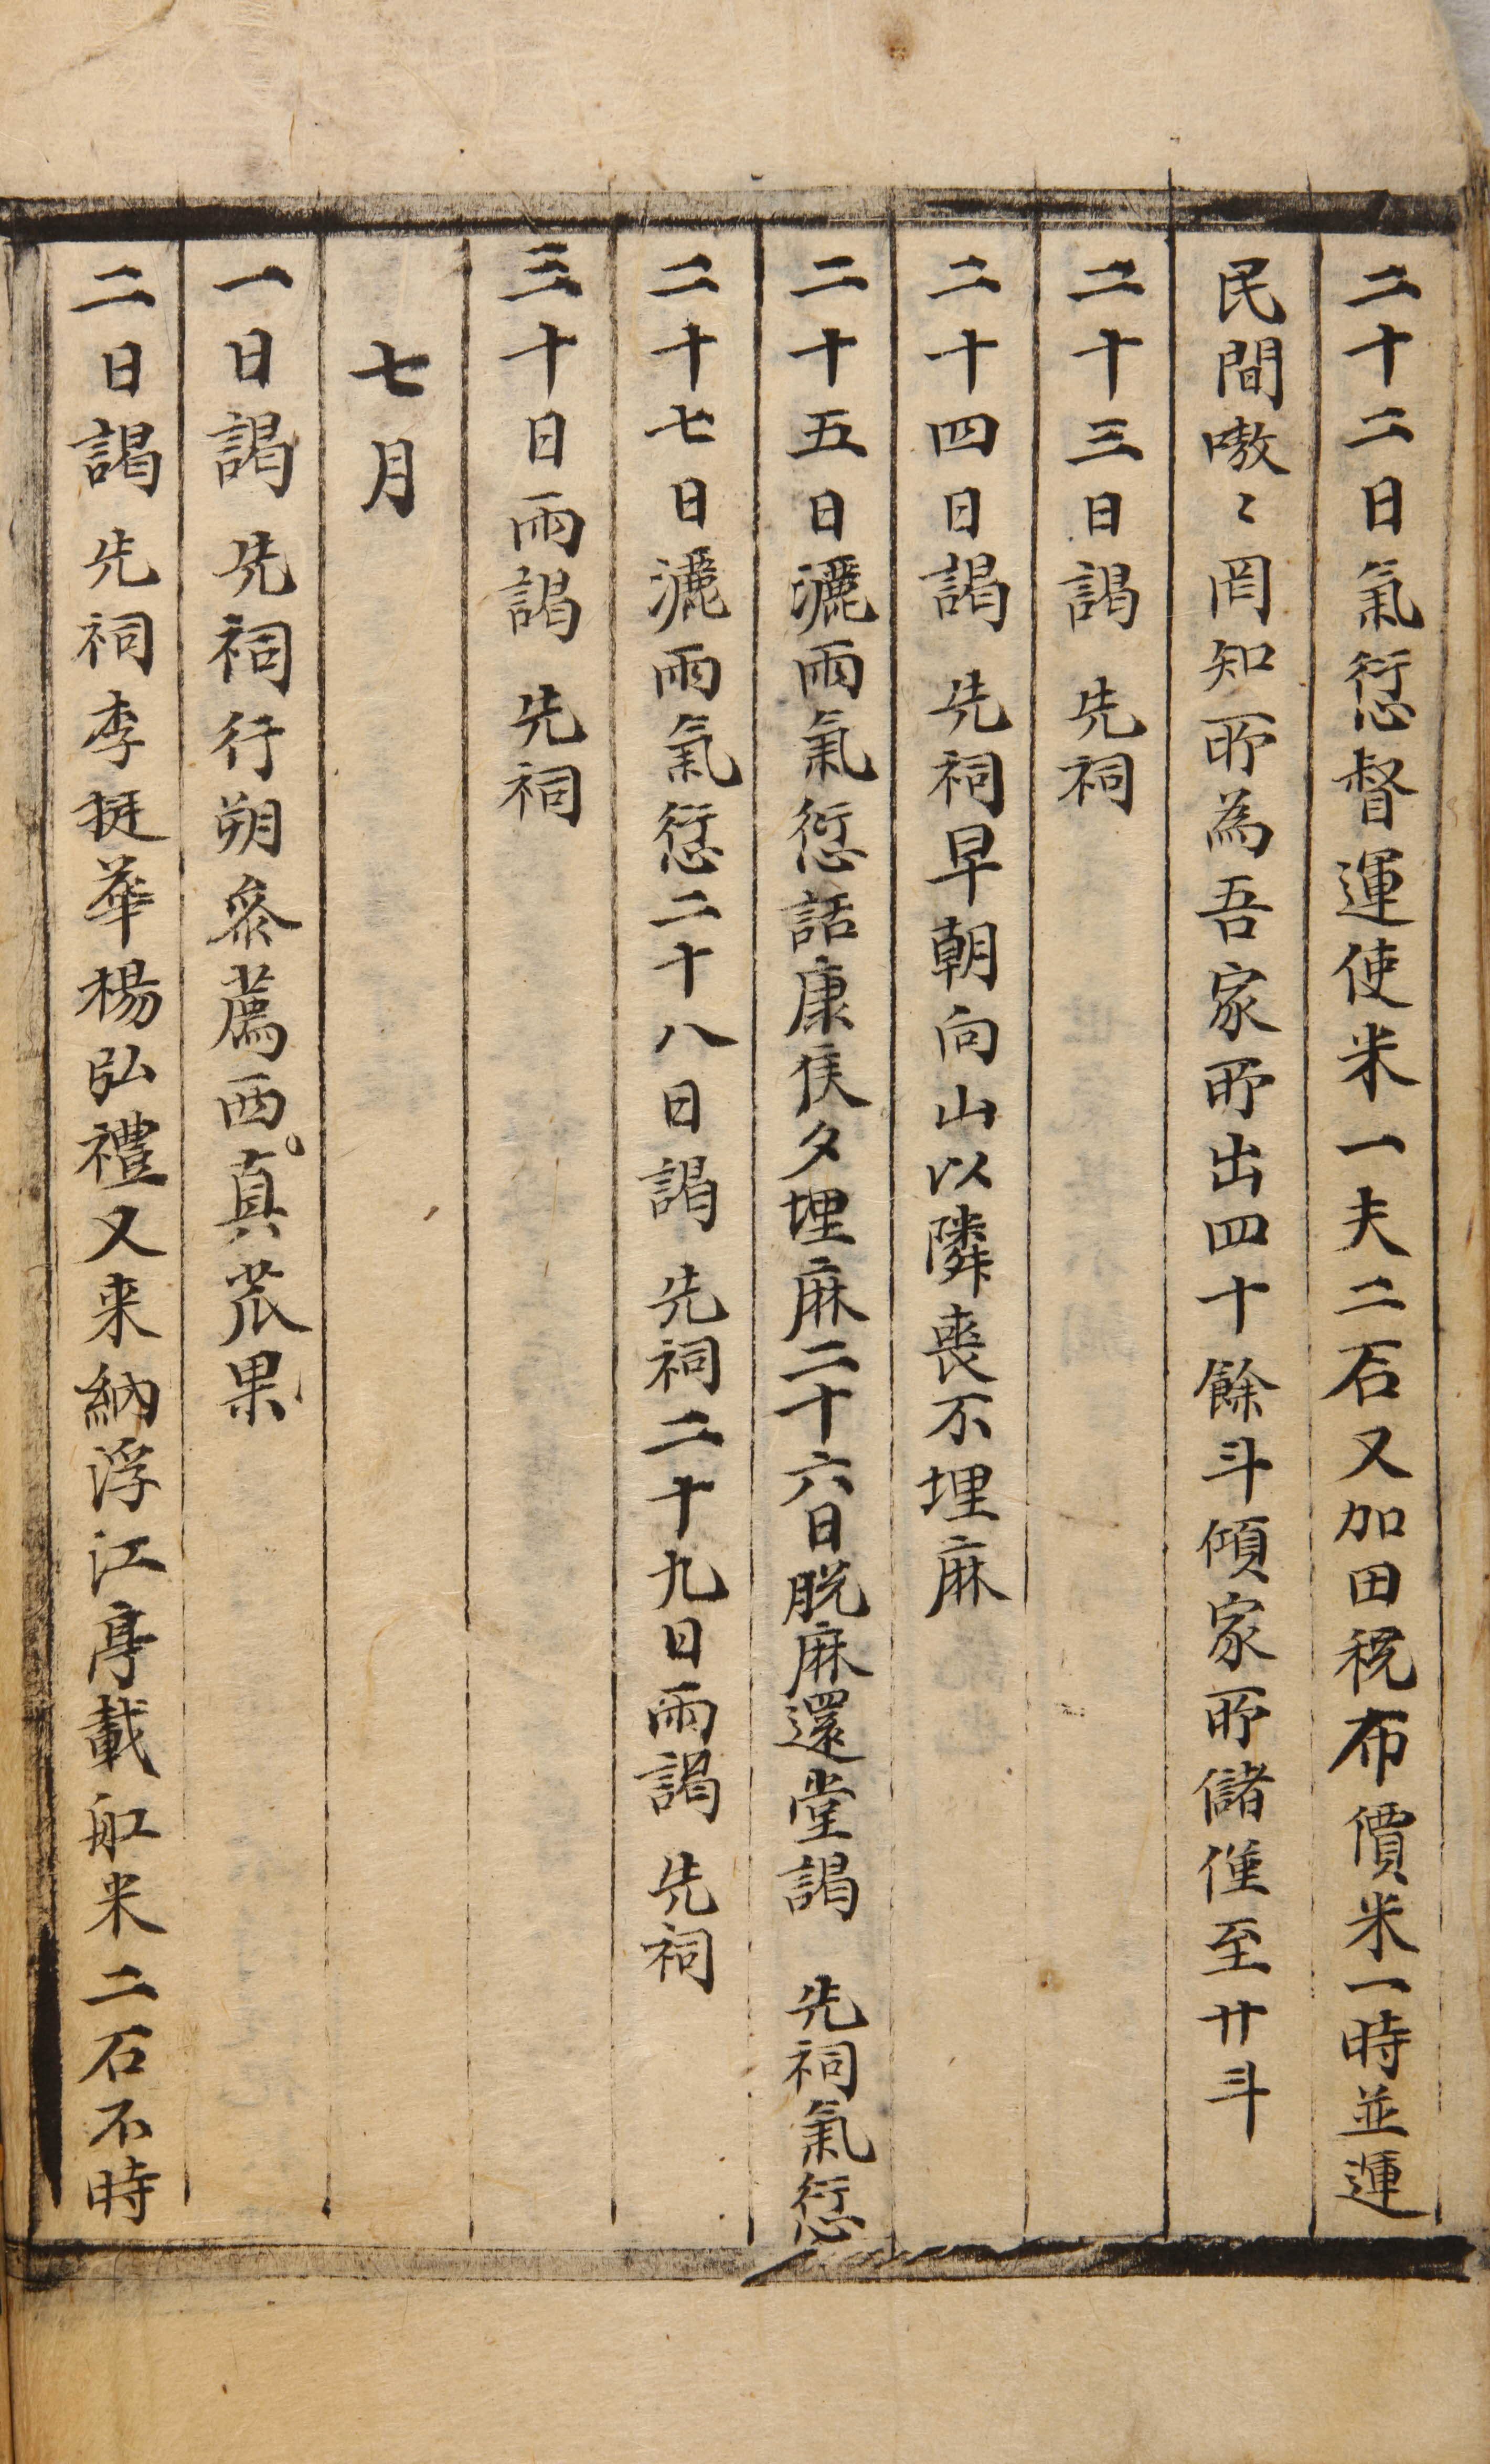 二十二日氣愆督運使米一夫二石又加田稅布價米一時並運
民間嗷〻罔知所為吾家所出四十餘斗傾家所儲僅至廿斗
二十三日謁 先祠
二十四日謁 先祠早朝向山以隣喪不埋麻
二十五日灑雨氣愆話康侯夕埋麻二十六日脫麻還堂謁 先祠氣愆
二十七日灑雨氣愆二十八日謁 先祠二十九日雨謁 先祠
三十日雨謁 先祠
七月
一日謁 先祠行朔叅薦西真苽果
二日謁 先祠李挺華楊弘禮又来納浮江亭載舡米二石不時